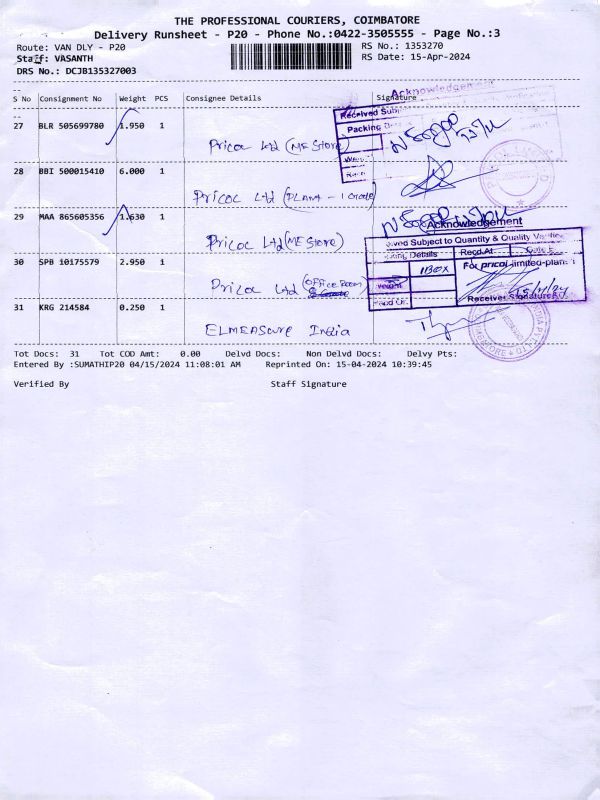 THE PROFESSIONAL COURIERS, COIMBATORE
Delivery Runsheet - P20 - Phone No.:0422-3505555 - Page No.:3
Route: VAN DLY - P20
RS No.: 1353270
Staff: VASANTH
RS Date: 15-Apr-2024
DRS No.: DCJB135327003
S No Consignment No Weight PCS Consignee Details Signature
Acknowledgement
Received Subj
Packing
27 BLR 505699780 1.950 1
Pricol Ltd (ME Store)
28 BBI 500015410 6.000 1
Pricol Ltd (PLANT - 1
29 MAA 865605356 1.630 1
Pricol Ltd (ME Store)
Acknowledgement
Subject to Quantity & Quality
Details Recd.At
1 BOX For pricol limited-plant 1
Weight
Receiver Signature
15/4/24
30 SPB 10175579 2.950 1
Pricol Ltd (OFFICE ROOM)
31 KRG 214584 0.250 1
ELMEASURE India
Tot Docs: 31 Tot COD Amt: 0.00 Delvd Docs: Non Delvd Docs: Delvy Pts:
Entered By :SUMATHIP20 04/15/2024 11:08:01 AM Reprinted On: 15-04-2024 10:39:45
Verified By Staff Signature